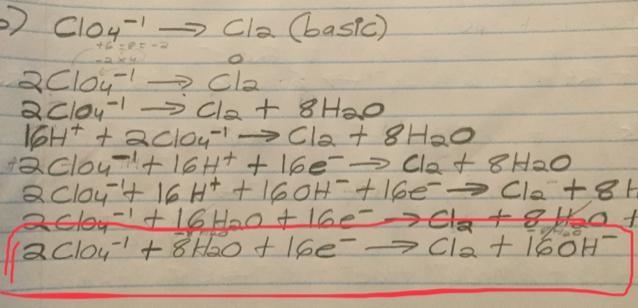 ) ClO4⁻¹ → Cl2 (basic)
+6 = 8 = -2
-2 x 4
0
2ClO4⁻¹ → Cl2
2ClO4⁻¹ → Cl2 + 8H2O
16H⁺ + 2ClO4⁻¹ → Cl2 + 8H2O
2ClO4⁻¹ + 16H⁺ + 16e⁻ → Cl2 + 8H2O
2ClO4⁻¹ + 16H⁺ + 16OH⁻ + 16e⁻ → Cl2 + 8H
2ClO4⁻¹ + 16H2O + 16e⁻ → Cl2 + 8H2O +
2ClO4⁻¹ + 8H2O + 16e⁻ → Cl2 + 16OH⁻